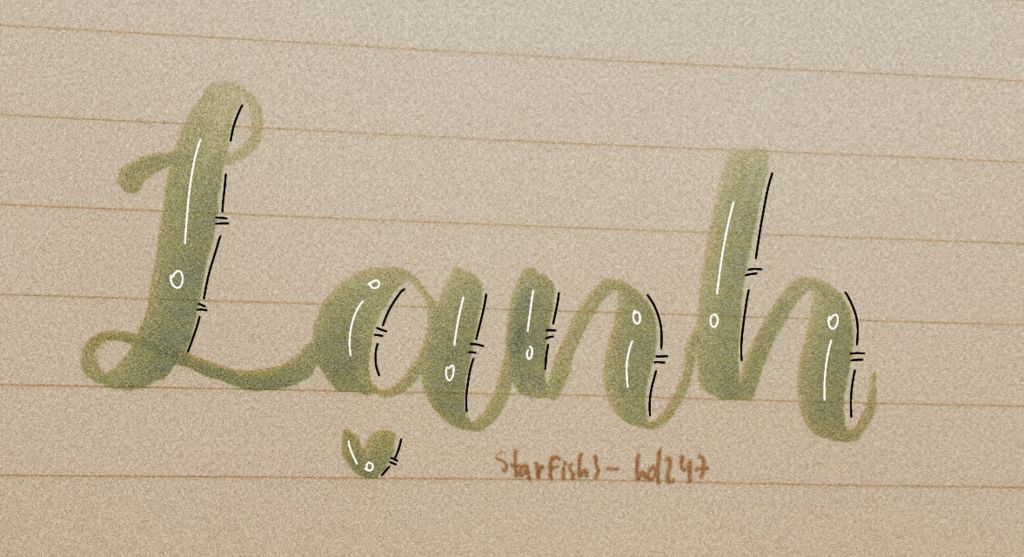 Lanh
starfish)- hd247